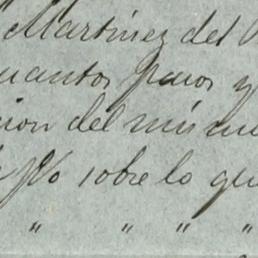 Martinez del
cuantos pasos y
cion del mismo
sobre lo que
" " " "